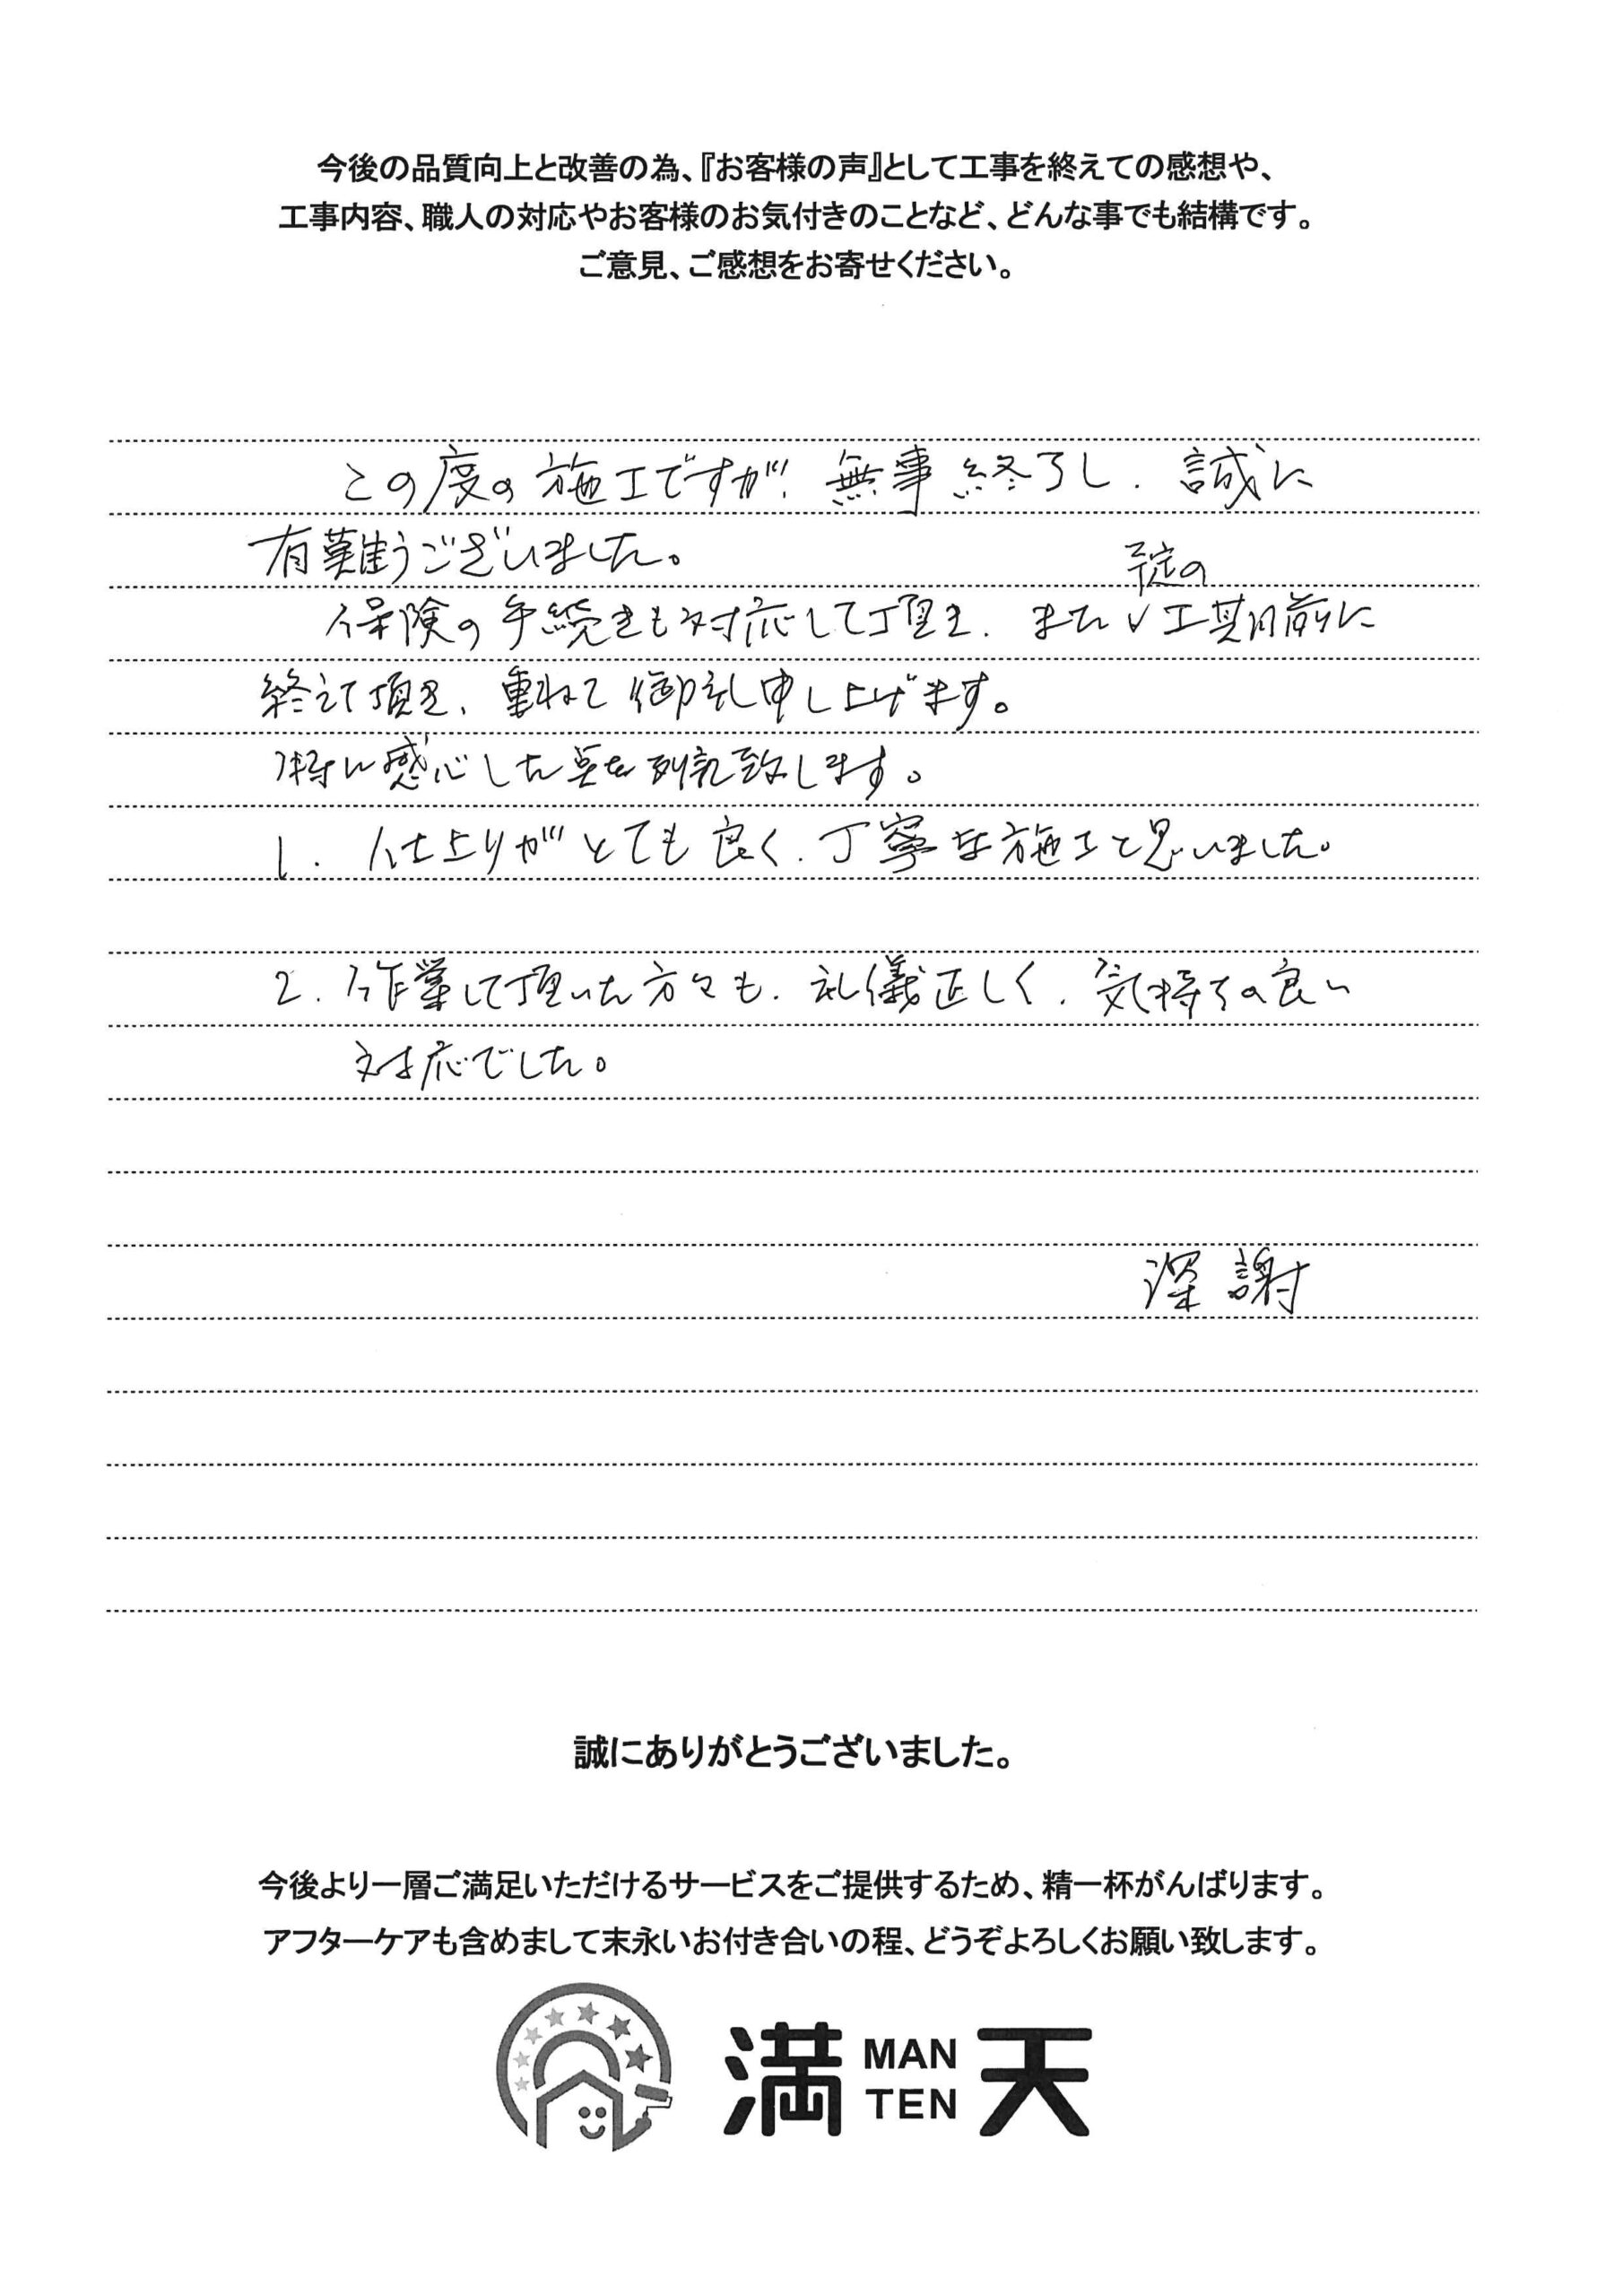 今後の品質向上と改善の為、『お客様の声』として工事を終えての感想や、
工事内容、職人の対応やお客様のお気付きのことなど、どんな事でも結構です。
ご意見、ご感想をお寄せください。
この度の施工ですが、無事終了し、誠に
有難うございました。
予定の
保険の手続きも対応して頂き、また✓工期前に
終えて頂き、重ねて御礼申し上げます。
特に感心した点を列記致します。
1. 仕上りがとても良く、丁寧な施工と思いました。
2. 作業して頂いた方々も、礼儀正しく、気持ちの良い
対応でした。
深謝
誠にありがとうございました。
今後より一層ご満足いただけるサービスをご提供するため、精一杯がんばります。
アフターケアも含めまして末永いお付き合いの程、どうぞよろしくお願い致します。
満 MAN TEN 天